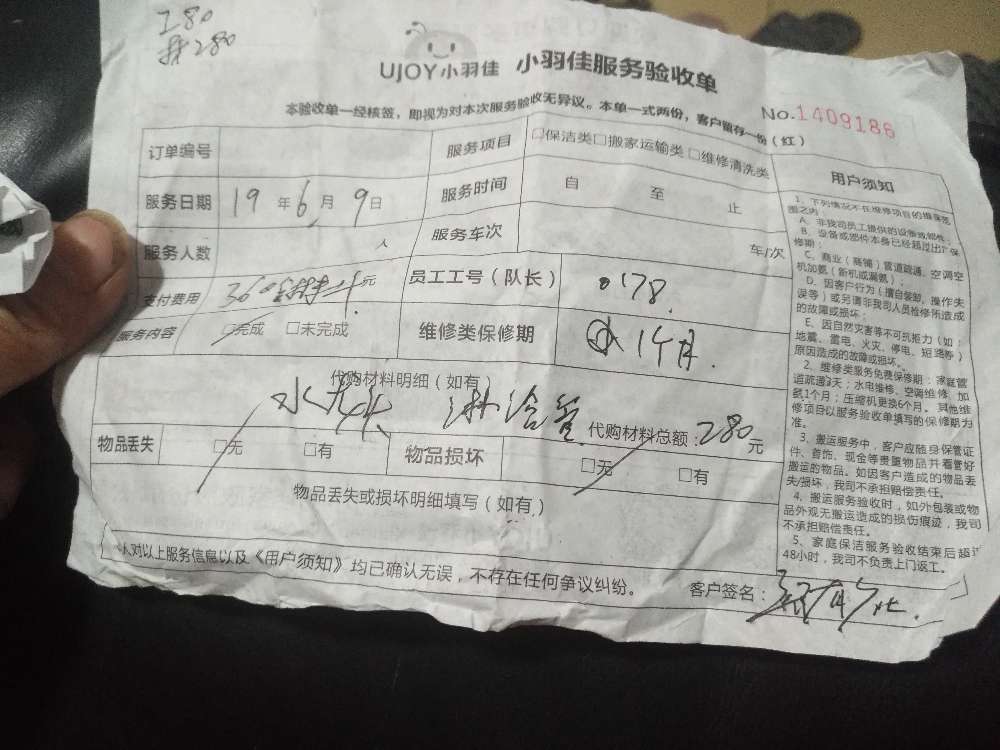 280
UJOY小羽佳 小羽佳服务验收单
本验收单一经核签，即视为对本次服务验收无异议。本单一式两份，客户留存一份（红）
No.1409186
订单编号 服务项目 □保洁类□搬家运输类□维修清洗类
服务日期 19年6月9日 服务时间 自 至 止
服务人数 人 服务车次 车/次
支付费用 360 元 员工工号（队长） 0178
服务内容 □完成 □未完成 维修类保修期 1个月
代购材料明细（如有）
水龙头 淋浴管 代购材料总额：280元
物品丢失 □无 □有 物品损坏 □无 □有
物品丢失或损坏明细填写（如有）
人对以上服务信息以及《用户须知》均已确认无误，不存在任何争议纠纷。 客户签名：
用户须知
1、下列情况不在维修项目的维保范
围之内
A、非我司员工提供的设备或部件；
B、设备或部件本身已经超过出厂保
修期；
C、商业（商铺）管道疏通、空调空
机加氨（新机或漏氨）；
D、因客户行为（擅自装卸、操作失
误等）或另请非我司人员检修所造成
的故障或损坏；
E、因自然灾害等不可抗拒力（如：
地震、雷电、火灾、停电、短路等）
原因造成的故障或损坏。
2、维修类服务免费保修期：家庭管
道疏通3天；水电维修、空调维修、加
氨1个月；压缩机更换6个月。其他维
修项目以服务验收单填写的保修期为
准。
3、搬运服务中，客户应随身保管证
件、首饰、现金等贵重物品并看管好
搬运的物品。如因客户造成的物品丢
失/损坏，我司不承担赔偿责任。
4、搬运服务验收时，如外包装或物
品外观无搬运造成的损伤痕迹，我司
不承担赔偿责任。
5、家庭保洁服务验收结束后超过
48小时，我司不负责上门返工。